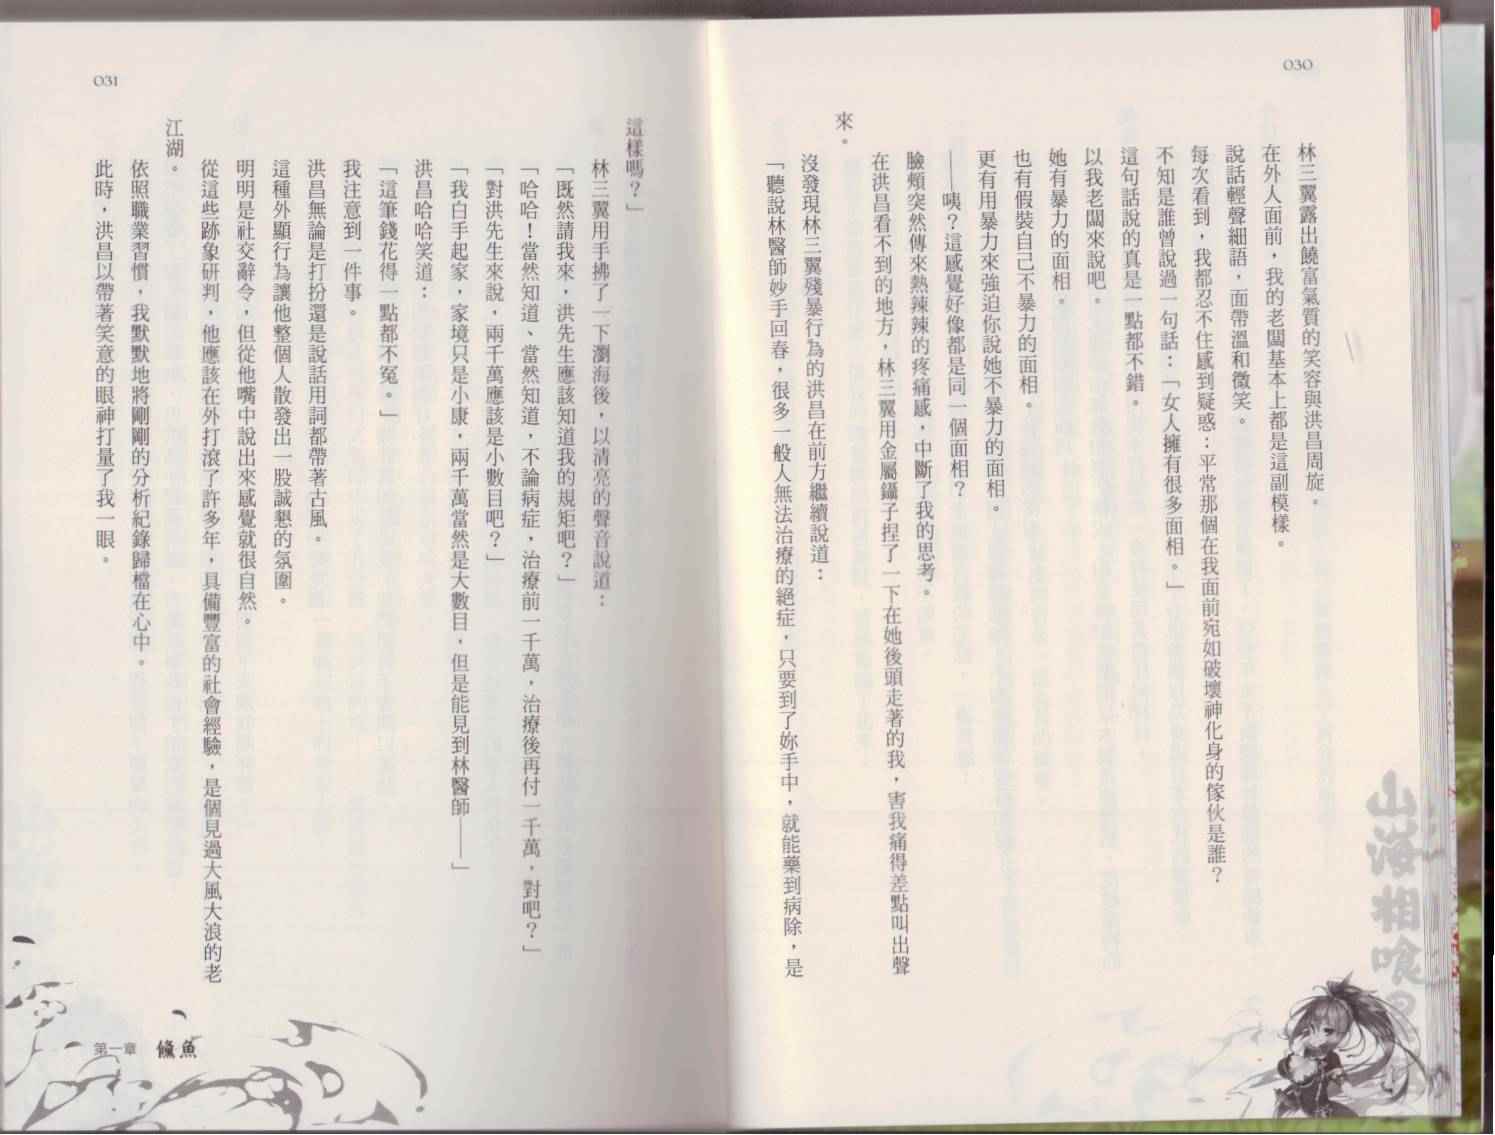 030
林三翼露出饒富氣質的笑容與洪昌周旋。
在外人面前，我的老闆基本上都是這副模樣。
說話輕聲細語，面帶溫和微笑。
每次看到，我都忍不住感到疑惑：平常那個在我面前宛如破壞神化身的傢伙是誰？
不知是誰曾說過一句話：「女人擁有很多面相。」
這句話說的真是一點都不錯。
以我老闆來說吧。
她有暴力的面相。
也有假裝自己不暴力的面相。
更有用暴力來強迫你說她不暴力的面相。
——咦？這感覺好像都是同一個面相？
臉頰突然傳來熱辣辣的疼痛感，中斷了我的思考。
在洪昌看不到的地方，林三翼用金屬鑷子捏了一下在她後頭走著的我，害我痛得差點叫出聲
來。
沒發現林三翼殘暴行為的洪昌在前方繼續說道：
「聽說林醫師妙手回春，很多一般人無法治療的絕症，只要到了妳手中，就能藥到病除，是
山海相喰
031
這樣嗎？」
林三翼用手拂了一下瀏海後，以清亮的聲音說道：
「既然請我來，洪先生應該知道我的規矩吧？」
「哈哈！當然知道、當然知道，不論病症，治療前一千萬，治療後再付一千萬，對吧？」
「對洪先生來說，兩千萬應該是小數目吧？」
「我白手起家，家境只是小康，兩千萬當然是大數目，但是能見到林醫師——」
洪昌哈哈笑道：
「這筆錢花得一點都不冤。」
我注意到一件事。
洪昌無論是打扮還是說話用詞都帶著古風。
這種外顯行為讓他整個人散發出一股誠懇的氛圍。
明明是社交辭令，但從他嘴中說出來感覺就很自然。
從這些跡象研判，他應該在外打滾了許多年，具備豐富的社會經驗，是個見過大風大浪的老
江湖。
依照職業習慣，我默默地將剛剛的分析紀錄歸檔在心中。
此時，洪昌以帶著笑意的眼神打量了我一眼。
第一章 儵魚